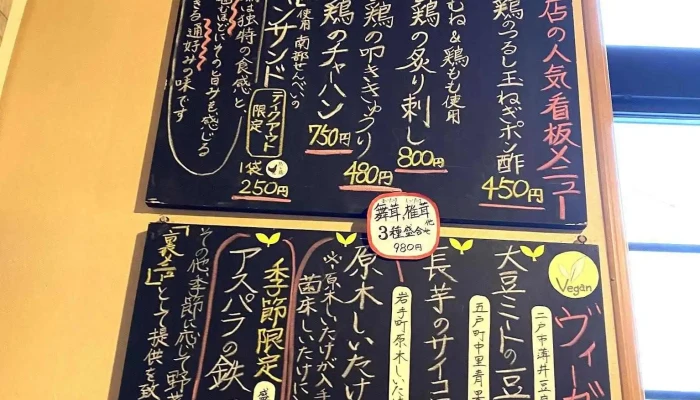 店の人気看板メニュー
鶏のつるし玉ねぎポン酢
450円
むね&鶏もも使用
鶏の炙り刺し
800円
鶏の叩ききゅうり
480円
鶏のチャーハン
750円
使用 南部せんべいの
ンサンド
テイクアウト限定
1袋
250円
は独特の食感と
むほどに

その旨みを感じる
きる通好みの味です
舞茸、椎茸他
3種盛合せ
980円
Vegan
ヴィーガ
二戸市薄井豆
大豆ミートの豆
五戸町中里青果
長芋のサイコロ
岩手町原木しいた
原木しいたけ
※原木しいたけが入手
菌床しいたけに
季節限定
アスパラの鉄
その他、季節に応じて野菜
「裏メニュー」として提供を致